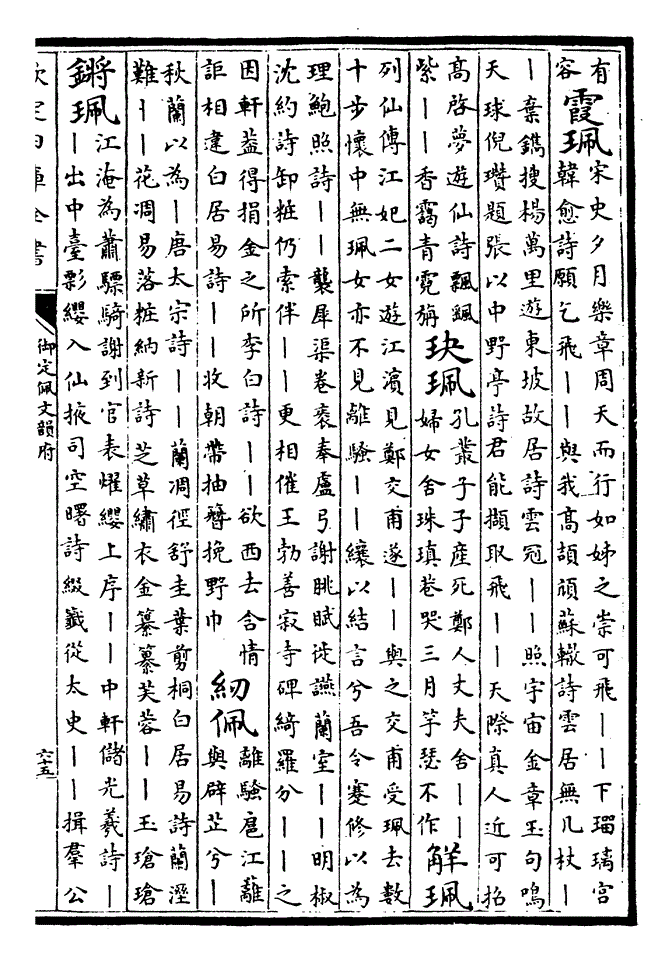 有宋史夕月樂章周天而行如姊之崇可飛｜｜下瑠璃宮
容霞珮韓愈詩願乞飛｜｜與我高頡頏蘇轍詩雲居無几杖｜
｜棄鐫搜楊萬里遊東坡故居詩雲冠｜｜照宇宙金章玉句鳴
天球倪瓚題張以中野亭詩君能擷取飛｜｜天際真人近可招
高啓夢遊仙詩飄飄玦珮孔叢子子產死鄭人丈夫舍｜｜
紫｜｜香靄青霓旃婦女舍珠瑱巷哭三月竽瑟不作解珮
列仙傳江妃二女遊江濱見鄭交甫遂｜｜與之交甫受珮去數
十步懷中無珮女亦不見離騷｜｜纕以結言兮吾令蹇修以為
理鮑照詩｜｜襲犀渠卷袠奉盧弓謝眺賦徙讌蘭室｜｜明椒
沈約詩卸粧仍索伴｜｜更相催王勃善寂寺碑綺羅分｜｜之
因軒葢得捐金之所李白詩｜｜欲西去含情紉佩離騷扈江蘺
詎相違白居易詩｜｜收朝帶抽簪挽野巾與辟芷兮｜
秋蘭以為｜唐太宗詩｜｜蘭凋徑舒圭葉剪桐白居易詩蘭溼
難｜｜花凋易落粧納新詩芝草繡衣金纂纂芙蓉｜｜玉瑲瑲
鏘珮江淹為蕭驃騎謝到官表燿纓上序｜｜中軒儲光羲詩｜
｜出中臺影纓入仙掖司空曙詩綴籤從太史｜｜揖羣公
欽定四庫全書
御定佩文韻府
六十五